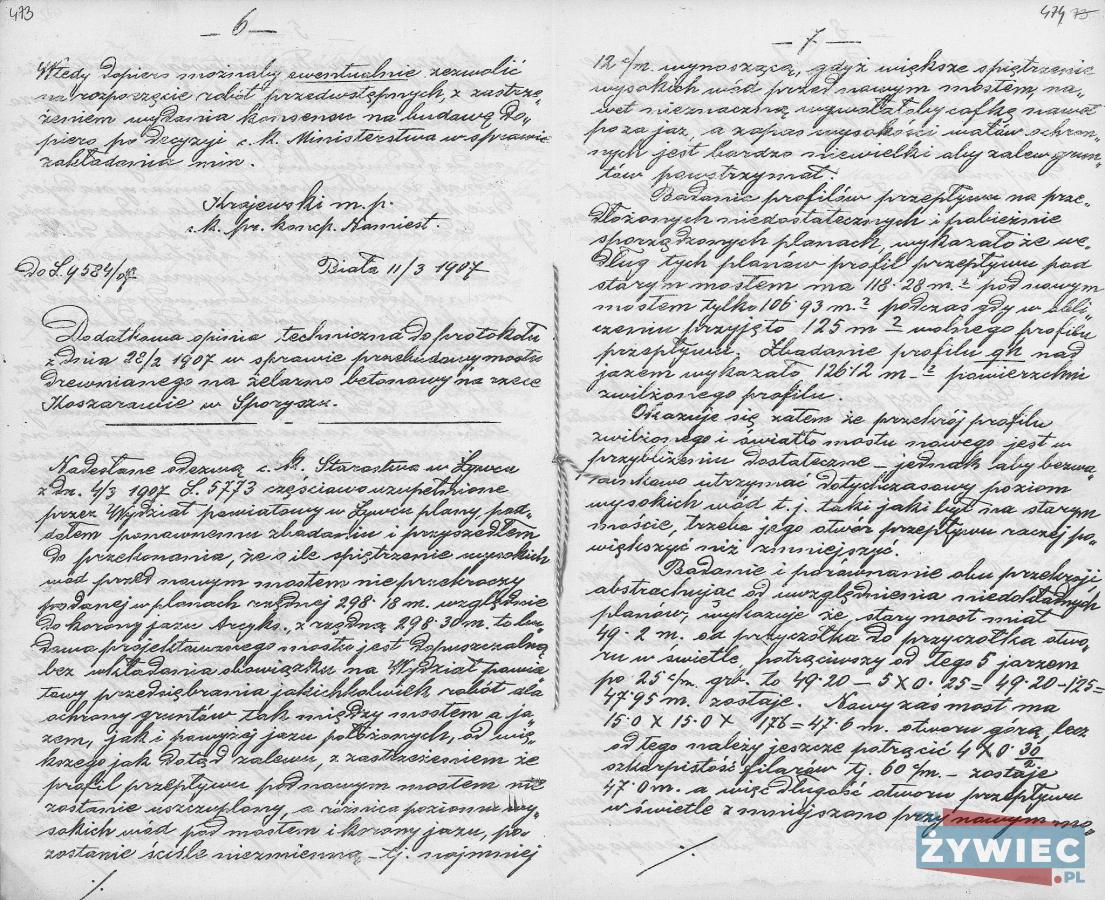 473
— 6 —
Wtedy dopiero możnaby ewentualnie zezwolić
na rozpoczęcie robót przedwstępnych, z zastrze„
żeniem wydania konsensu na budowę do„
piero po decyzyi c. k. Ministerstwa w sprawie
zakładania min.
Krajewski m. p.
c. k. pr. koncp. Namiest.
Do L. 9584/07
Biała 11/3 1907
Dodatkowa opinia techniczna do protokołu
z dnia 28/2 1907 w sprawie przebudowy mostu
drewnianego na żelazno betonowy na rzece
Koszarawie w Sporyszu.
Nadesłane odezwą c. k. Starostwa w Żywcu
z dn. 4/3 1907 L. 5773 częściowo uzupełnione
przez Wydział powiatowy w Żywcu plany, pod„
dałem ponownemu zbadaniu i przyszedłem
do przekonania, że o ile spiętrzenie wysokich
wód przed nowym mostem nie przekroczy
podanej w planach rzędnej 298·18 m. względnie
do korony jazu Arcyks. z rzędną 298·30 m. to bu„
dowa projektowanego mostu jest dopuszczalną
bez wkładania obowiązku na Wydział powia„
towy przedsiębrania jakichkolwiek robót dla
ochrony gruntów tak między mostem a ja„
zem, jak i powyżej jazu położonych, od wię„
kszego jak dotąd zalewu, z zastrzeżeniem że
profil przepływu pod nowym mostem nie
zostanie uszczuplony, a różnica poziomu wy„
sokich wód pod mostem i korony jazu, po„
zostanie ściśle niezmienną – tj. najmniej
./.
474 73
— 7 —
12 c/m. wynoszącą, gdyż większe spiętrzenie
wysokich wód przed nowym mostem, na„
wet nieznaczne wywołałoby cofkę nawet
poza jaz, a zapas wysokości wałów ochron„
nych jest bardzo niewielki aby zalew grun„
tów powstrzymał.
Badania profilów przepływu na prze„
dłożonych niedostatecznych i pobieżnie
sporządzonych planach, wykazało że we„
dług tych planów profil przepływu pod
starym mostem ma 118·28 m.² pod nowym
mostem tylko 106·93 m.² podczas gdy w obli„
czeniu przyjęto 125 m² wolnego profilu
przepływu. Zbadanie profilu gh nad
jazem wykazało 126·12 m.² powierzchni
zwilżonego profilu.
Okazuje się zatem że przekrój profilu
zwilżonego i światło mostu nowego jest w
przybliżeniu dostateczne – jednak aby bezwa„
runkowo utrzymać dotychczasowy poziom
wysokich wód t. j. taki jaki był na starym
moście, trzeba jego otwór przepływu raczej po„
większyć niż zmniejszyć.
Badanie i porównanie obu przekroji
abstrachując od uwzględnienia niedokładnych
planów, wykazuje że stary most miał
49·2 m. od przyczółka do przyczółka otwo„
ru w świetle, potrąciwszy od tego 5 jarzem
po 25 c/m. grb. to 49·20 – 5 X 0·25 = 49·20 – 125 =
47·95 m. zostaje. Nowy zas most ma
15·0 X 15·0 X 176 = 47·6 m. otworu górą, lecz
od tego należy jeszcze potrącić 4 X 0·30/2
szkarpistość filarów tj. 60 c/m. – zostaje
47·0 m. a więc długość otworu przepływu
w świetle zmniejszono przy nowym mo„
./.
ŻYWIEC
.PL